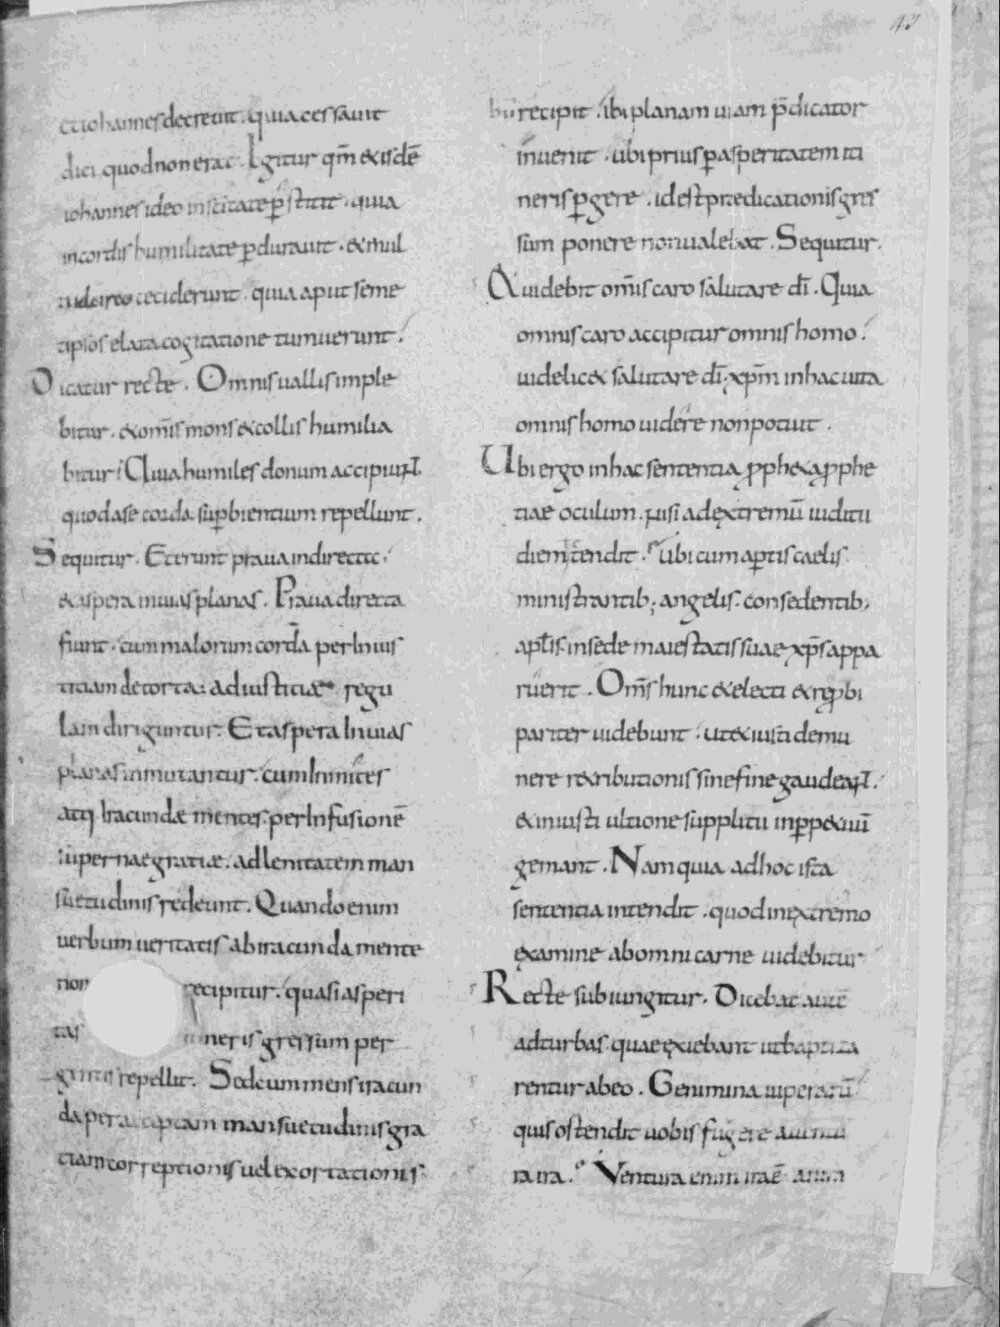 42
et iohannes decrevit. quia cessavit
dici quod non erat. Igitur qm̄ & isdē
iohannes ideo in scītate p̄stitit. quia
in cordis humilitate ꝑduravit. & mul
ti idcirco ceciderunt. quia aput seme
tipsos elata cogitatione tumuerunt.
Dicatur recte. Omnis vallis imple
bitur. & om̄is mons & collis humilia
bitur. Quia humiles donum accipiunt
quod a se corda suꝑbientium repellunt.
Sequitur. Et erunt prava in directa.
& aspera in vias planas. Prava directa
fiunt. cum malorum corda per Inius
titiam detorta. ad iustitiae regu
lam diriguntur. Et aspera In vias
planas inmutantur. cum Inmites
atq; Iracundae mentes. per Infusionē
supernae gratiae. ad lenitatem man
suetudinis redeunt. Quando enim
verbum veritatis ab iracunda mente
non recipitur. quasi asperi
tas itineris gressum per
gentis repellit. Sed cum mens iracun
da per acceptam mansuetudinis gra
tiam correptionis vel exortationis
recipit. ibi planam viam p̄dicator
invenit. ubi prius ꝑ asperitatem iti
neris ꝑgere. id est praedicationis gres
sum ponere non valebat. Sequitur.
& videbit om̄is caro salutare dī. Quia
omnis caro accipitur omnis homo.
videlic& salutare dī. xp̄m in hac vita
omnis homo videre non potuit.
Ubi ergo in hac sententia ꝓph&a ꝓphe
tiae oculum. nisi ad extremū iuditii
diem tendit. Ubi cum aꝑtis caelis.
ministrantib; angelis. consedentib;
apl̄is. in sede maiestatis suae xp̄s appa
ruerit. Om̄s hunc & electi & reꝓbi
pariter videbunt. ut & iusti de mu
nere r&ributionis sine fine gaudeant.
& iniusti ultione supplitii in ꝑp&uū
gemant. Nam quia ad hoc ista
sententia intendit. quod in extremo
examine ab omni carne videbitur
Recte subiungitur. Dicebat autē
ad turbas. quae exiebant ut baptiza
rentur ab eo. Genimina viperarū
quis ostendit vobis fugere a ventu
ra ira. Ventura enim ira ē